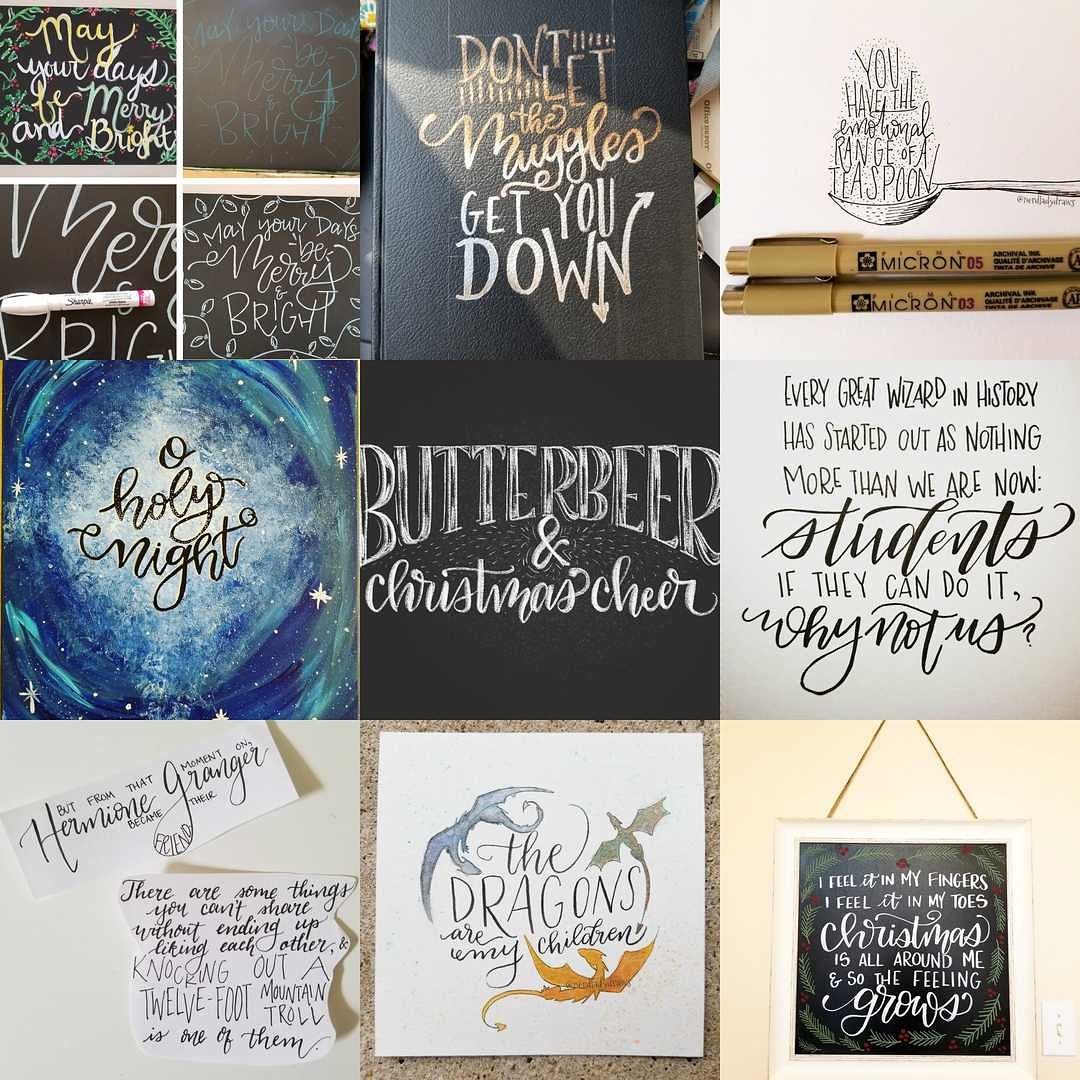 May
your days
be Merry
and Bright
May your Days
be
Merry
&
BRIGHT
Mer
Sharpie
BRIG
May your Days
be
Merry
&
BRIGHT
DON'T
LET
the
Muggles
GET YOU
DOWN
OFFICE DEPOT
YOU
HAVE THE
emotional
RANGE OF A
TEASPOON
@nerdladydraws
PIGMA
MICRON 05
ARCHIVAL INK
QUALITÉ D'ARCHIVES
TINTA DE ARCHIVO
PIGMA
MICRON 03
ARCHIVAL INK
QUALITÉ D'ARCHIVES
TINTA DE ARCHIVO
O
holy
night
BUTTERBEER
&
christmas cheer
EVERY GREAT WIZARD IN HISTORY
HAS STARTED OUT AS NOTHING
MORE THAN WE ARE NOW:
students
IF THEY CAN DO IT,
why not us?
BUT FROM THAT MOMENT ON,
Hermione Granger
BECAME THEIR
FRIEND
There are some things
you can't share
without ending up
liking each other, &
KNOCKING OUT A
TWELVE-FOOT MOUNTAIN
TROLL
is one of them.
the
DRAGONS
are my children
@nerdladydraws
I FEEL it IN MY FINGERS
I FEEL it IN MY TOES
Christmas
IS ALL AROUND ME
& SO THE FEELING
grows